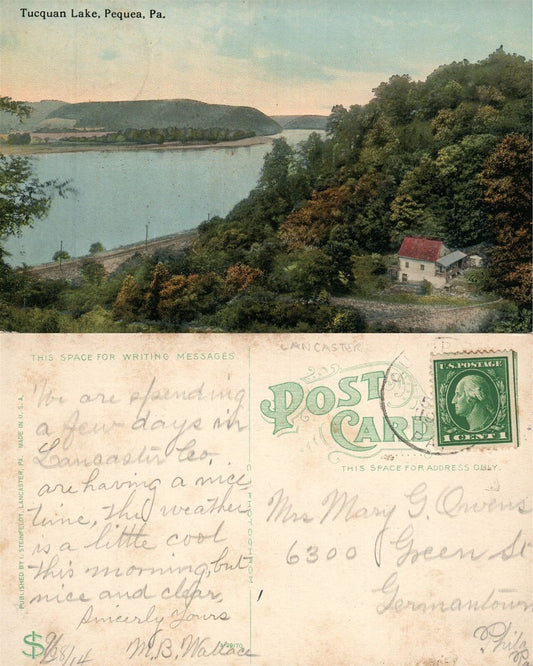 Tucquan Lake, Pequea, Pa.
LANCASTER
THIS SPACE FOR WRITING MESSAGES
POST CARD
U.S. POSTAGE
1 CENT 1
THIS SPACE FOR ADDRESS ONLY.
We are spending
a few days in
Lancaster Co,
are having a nice
time, the weather
is a little cool
this morning, but
nice and clear,
Sincerly Yours
M. B. Wallace
8/14
Mrs Mary G. Owens
6300 Green St
Germantown
Phila
Pa
PUBLISHED BY I. STEINFELDT, LANCASTER, PA. MADE IN U.S.A.